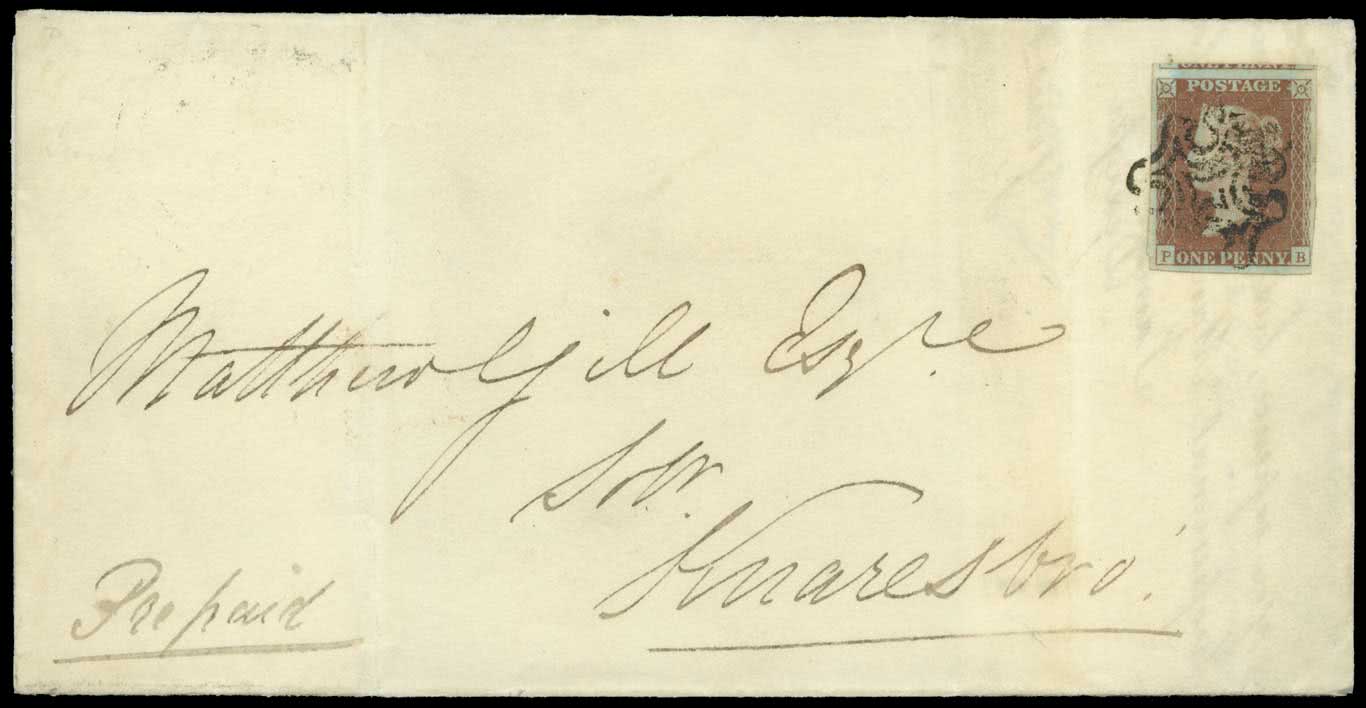 ONE PENNY
POSTAGE
P ONE PENNY B
Matthew Gill Esqre
Solr.
Knaresbro'.
Prepaid